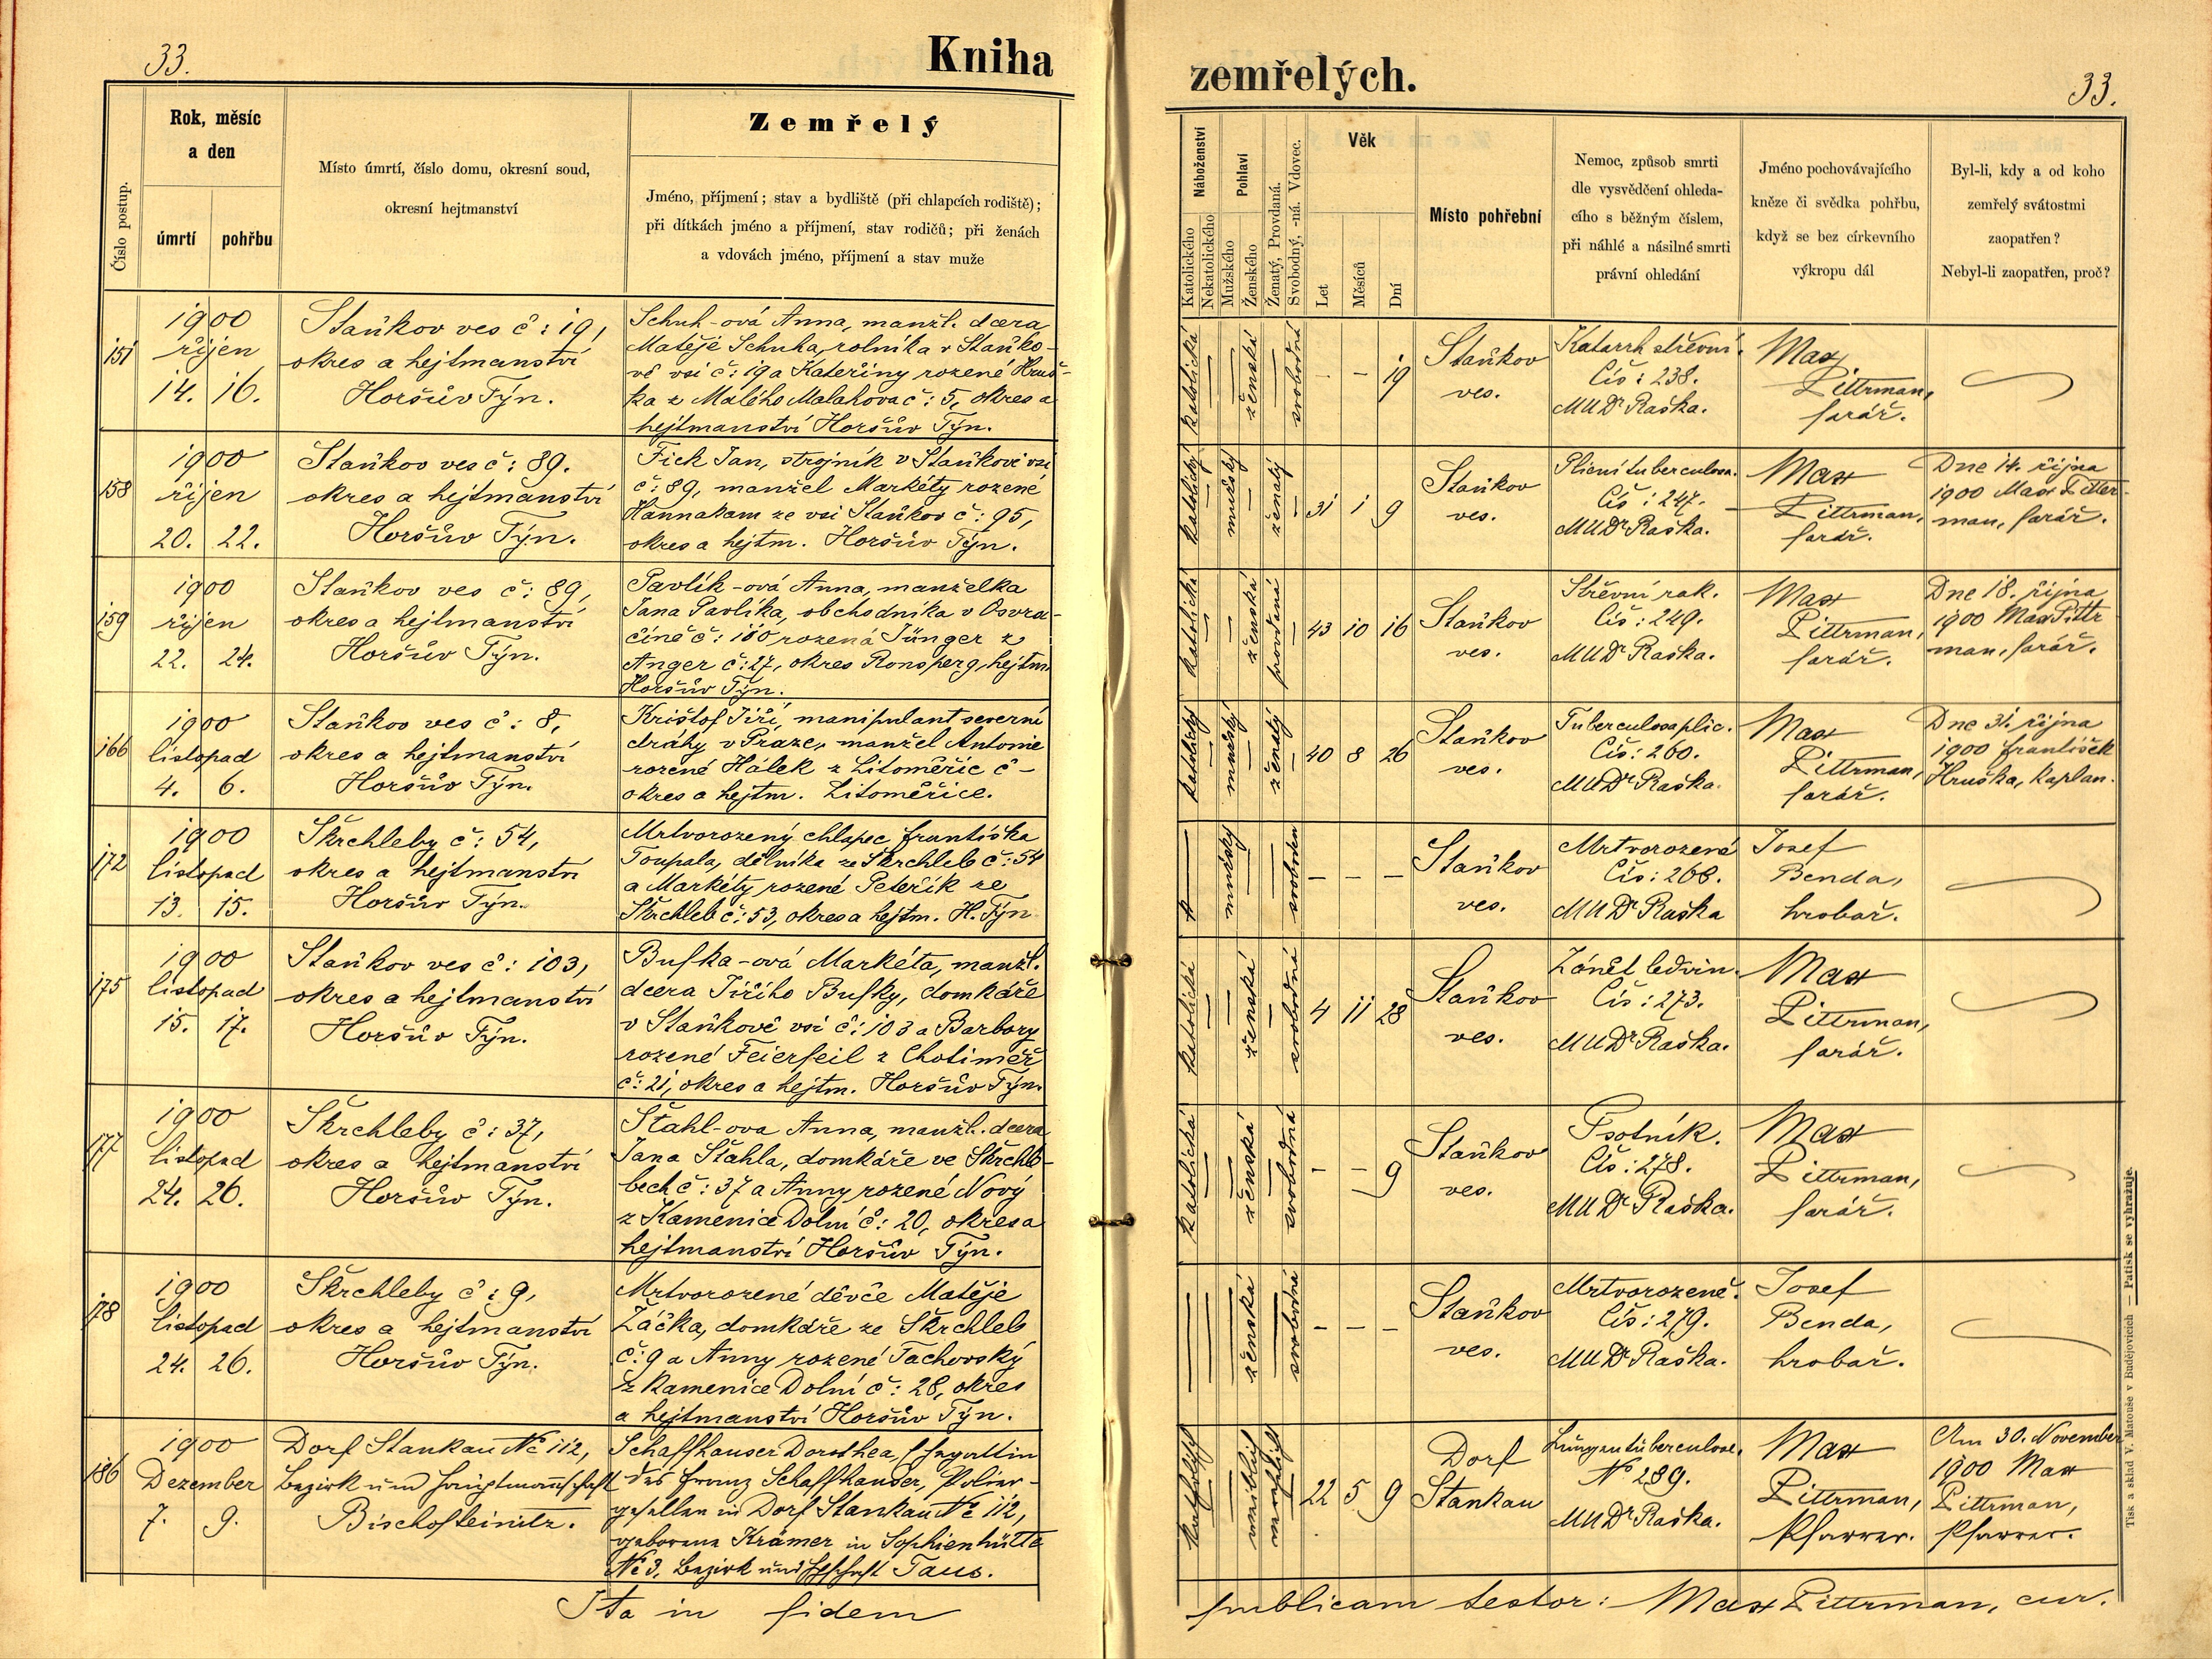 33.
Kniha
Číslo postup.
Rok, měsíc
a den
úmrtí
pohřbu
Místo úmrtí, číslo domu, okresní soud,
okresní hejtmanství
Zemřelý
Jméno, příjmení; stav a bydliště (při chlapcích rodiště);
při dítkách jméno a příjmení, stav rodičů; při ženách
a vdovách jméno, příjmení a stav muže
151
1900
říjen
14. 16.
Staňkov ves č: 19,
okres a hejtmanství
Horšův Týn.
Schuh-ová Anna, manžl. dcera
Matěje Schuha, rolníka v Staňko-
vě vsi č: 19 a Kateřiny rozené Hruš-
ka z Malého Malahova č: 5, okres a
hejtmanství Horšův Týn.
158
1900
říjen
20. 22.
Staňkov ves č: 89.
okres a hejtmanství
Horšův Týn.
Fick Jan, strojník v Staňkově vsi
č: 89, manžel Markéty rozené
Hannakam ze vsi Staňkov č: 95,
okres a hejtm. Horšův Týn.
159
1900
říjen
22. 24.
Staňkov ves č: 89,
okres a hejtmanství
Horšův Týn.
Pavlík-ová Anna, manželka
Jana Pavlíka, obchodníka v Osvra-
číně č: 180 rozená Sünger z
Anger č: 27, okres Ronsperg, hejtm.
Horšův Týn.
166
1900
listopad
4. 6.
Staňkov ves č: 8,
okres a hejtmanství
Horšův Týn.
Krištof Jiří, manipulant severní
dráhy v Praze, manžel Antonie
rozené Hálek z Litoměřic č -
okres a hejtm. Litoměřice.
172
1900
listopad
13. 15.
Škrchleby č: 54,
okres a hejtmanství
Horšův Týn.
Mrtvorozený chlapec Františka
Toupala, dělníka ze Škrchleb č: 54
a Markéty rozené Peteřík ze
Škrchleb č: 53, okres a hejtm. H. Týn
175
1900
listopad
15. 17.
Staňkov ves č: 103,
okres a hejtmanství
Horšův Týn.
Bufka-ová Markéta, manžl.
dcera Jiřího Bufky, domkáře
v Staňkově vsi č: 103 a Barbory
rozené Feierfeil z Chotiměř
č: 21, okres a hejtm. Horšův Týn.
177
1900
listopad
24. 26.
Škrchleby č: 37,
okres a hejtmanství
Horšův Týn.
Štahl-ova Anna, manžl. dcera
Jana Štahla, domkáře ve Škrchle-
bech č: 37 a Anny rozené Nový
z Kamenice Dolní č: 20, okres a
hejtmanství Horšův Týn.
178
1900
listopad
24. 26.
Škrchleby č: 9,
okres a hejtmanství
Horšův Týn.
Mrtvorozené děvče Matěje
Žáčka, domkáře ze Škrchleb
č: 9 a Anny rozené Tachovský
z Kamenice Dolní č: 28, okres
a hejtmanství Horšův Týn.
186
1900
Dezember
7. 9.
Dorf Stankau No 112,
Bezirk und Hauptmannschaft
Bischofteinitz.
Schaffhauser Dorothea, Ehegattin
des Franz Schaffhauser, Polier-
gesellen in Dorf Stankau No 112,
geborene Krämer in Sophienhütte
No 3, Bezirk und Taus.
Ita in fidem
zemřelých.
33.
Náboženství
Katolického
Nekatolického
Pohlaví
Mužského
Ženského
Ženatý, Provdaná.
Svobodný, -ná. Vdovec.
Věk
Let
Měsíců
Dní
Místo pohřební
Nemoc, způsob smrti
dle vysvědčení ohleda-
cího s běžným číslem,
při náhlé a násilné smrti
právní ohledání
Jméno pochovávajícího
kněze či svědka pohřbu,
když se bez církevního
výkropu dál
Byl-li, kdy a od koho
zemřelý svátostmi
zaopatřen?
Nebyl-li zaopatřen, proč?
katolická
ženská
svobodná
- - 19
Staňkov
ves.
Katarrh střevní.
Čís: 238.
MUDr Raška.
Max
Pittrman,
farář.
katolický
mužský
ženatý
31 1 9
Staňkov
ves.
Plicní tuberculosa.
Čís: 247.
MUDr Raška.
Max
Pittrman,
farář.
Dne 14. října
1900 Max Pittr-
man, farář.
katolická
ženská
provdaná
43 10 16
Staňkov
ves.
Střevní rak.
Čís: 249.
MUDr Raška.
Max
Pittrman,
farář.
Dne 18. října
1900 Max Pittr
man, farář.
katolický
mužský
ženatý
40 8 26
Staňkov
ves.
Tuberculosa plic.
Čís: 260.
MUDr Raška.
Max
Pittrman,
farář.
Dne 31. října
1900 František
Hruška, kaplan.
mužský
svoboden
- - -
Staňkov
ves.
Mrtvorozené
Čís: 266.
MUDr Raška
Josef
Benda,
hrobař.
katolická
ženská
svobodná
4 11 28
Staňkov
ves.
Zánět ledvin.
Čís: 273.
MUDr Raška.
Max
Pittrman,
farář.
katolická
ženská
svobodná
- - 9
Staňkov
ves.
Psotník.
Čís: 278.
MUDr Raška.
Max
Pittrman,
farář.
ženská
svobodná
- - -
Staňkov
ves.
Mrtvorozené.
Čís: 279.
MUDr Raška.
Josef
Benda,
hrobař.
katholisch
weiblich
verehelicht
22 5 9
Dorf
Stankau
Lungentuberculose.
No 289.
MUDr Raška.
Max
Pittrman,
Pfarrer.
Am 30. November
1900 Max
Pittrman,
Pfarrer.
publicam testor: Max Pittrman, cur.
Tisk a sklad V. Matouše v Budějovicích — Patisk se vyhražuje.